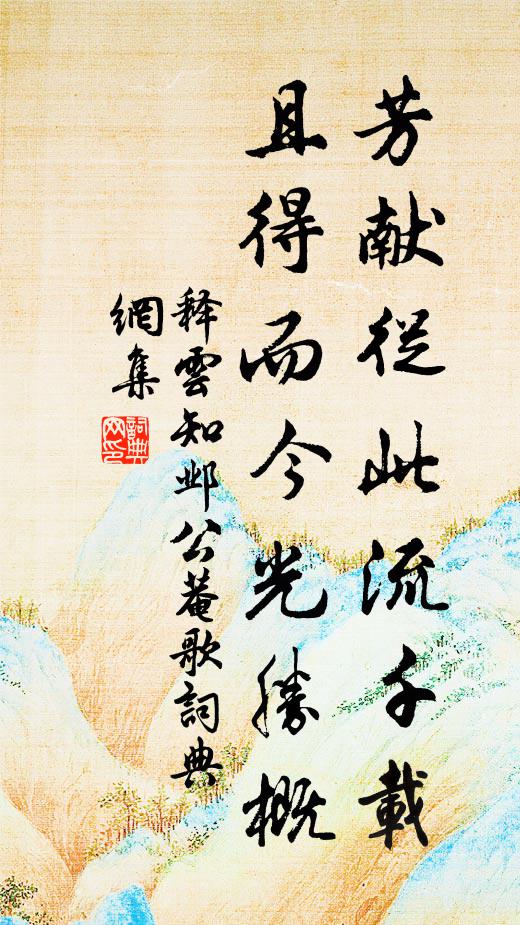 芳献從此流千載
且得而今光勝概
释雲知邺公菴歌詞典
網集
詞典
网印